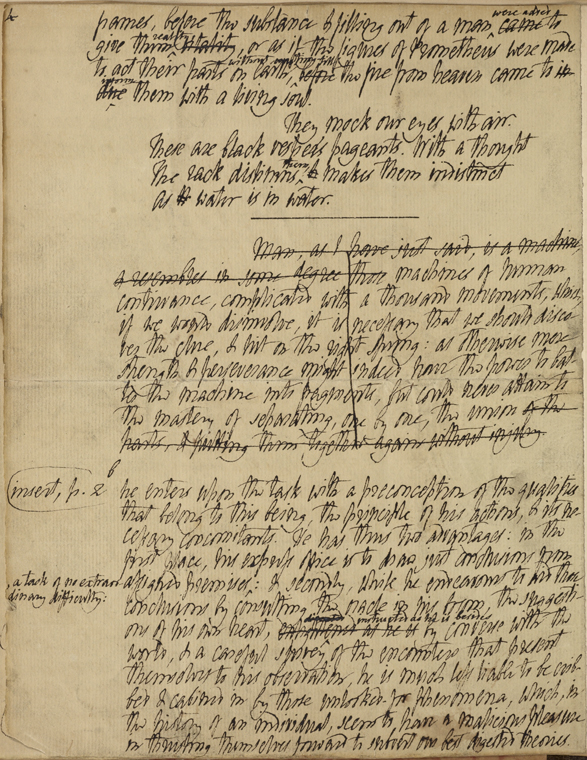 frames, before the substance & filling out of a man, were added came to
give them reality vitality, or as if the figures of Prometheus were made
to act their parts on earth, without waiting till before the fire from heaven came to
inform them with a living soul.
They mock our eyes with air.
These are black vespers pageants. With a thought
The rack dislimns, & makes them indistinct
As water is in water.
Man, as I have just said, is a machine,
& resembles in some degree those machines of human
contrivance, complicated with a thousand movements,
if we would dissolve, it is necessary that we should disco
ver the clue, & hit on the right spring: as otherwise mere
strength & perseverance might indeed have the power to
the machine into fragments, but could never attain to
the mastery of separating, one by one, the union of the
parts, & putting them together again without injury.
insert, p. 2
he enters upon the task with a preconception of the qualities
that belong to this being, the principle of his actions, & its ne-
cessary concomitants. He has thus two advantages: in the
first place, his express office is to draw just conclusions from
assigned premises: & secondly, while he endeavours to
, a task of no extraor
dinary difficulty:
conclusions by consulting the oracle in his bosom, the suggesti
ons of his own heart, instructed as he is besides by converse with the
world, & a careful survey of the encounters that present
themselves to his observation, he is much less liable to be crib-
bed & cabined in by those unlooked-for phenomena, which, in
the history of an individual, seem to have a malicious pleasure
in thrusting themselves forward to subvert our best digested theories.